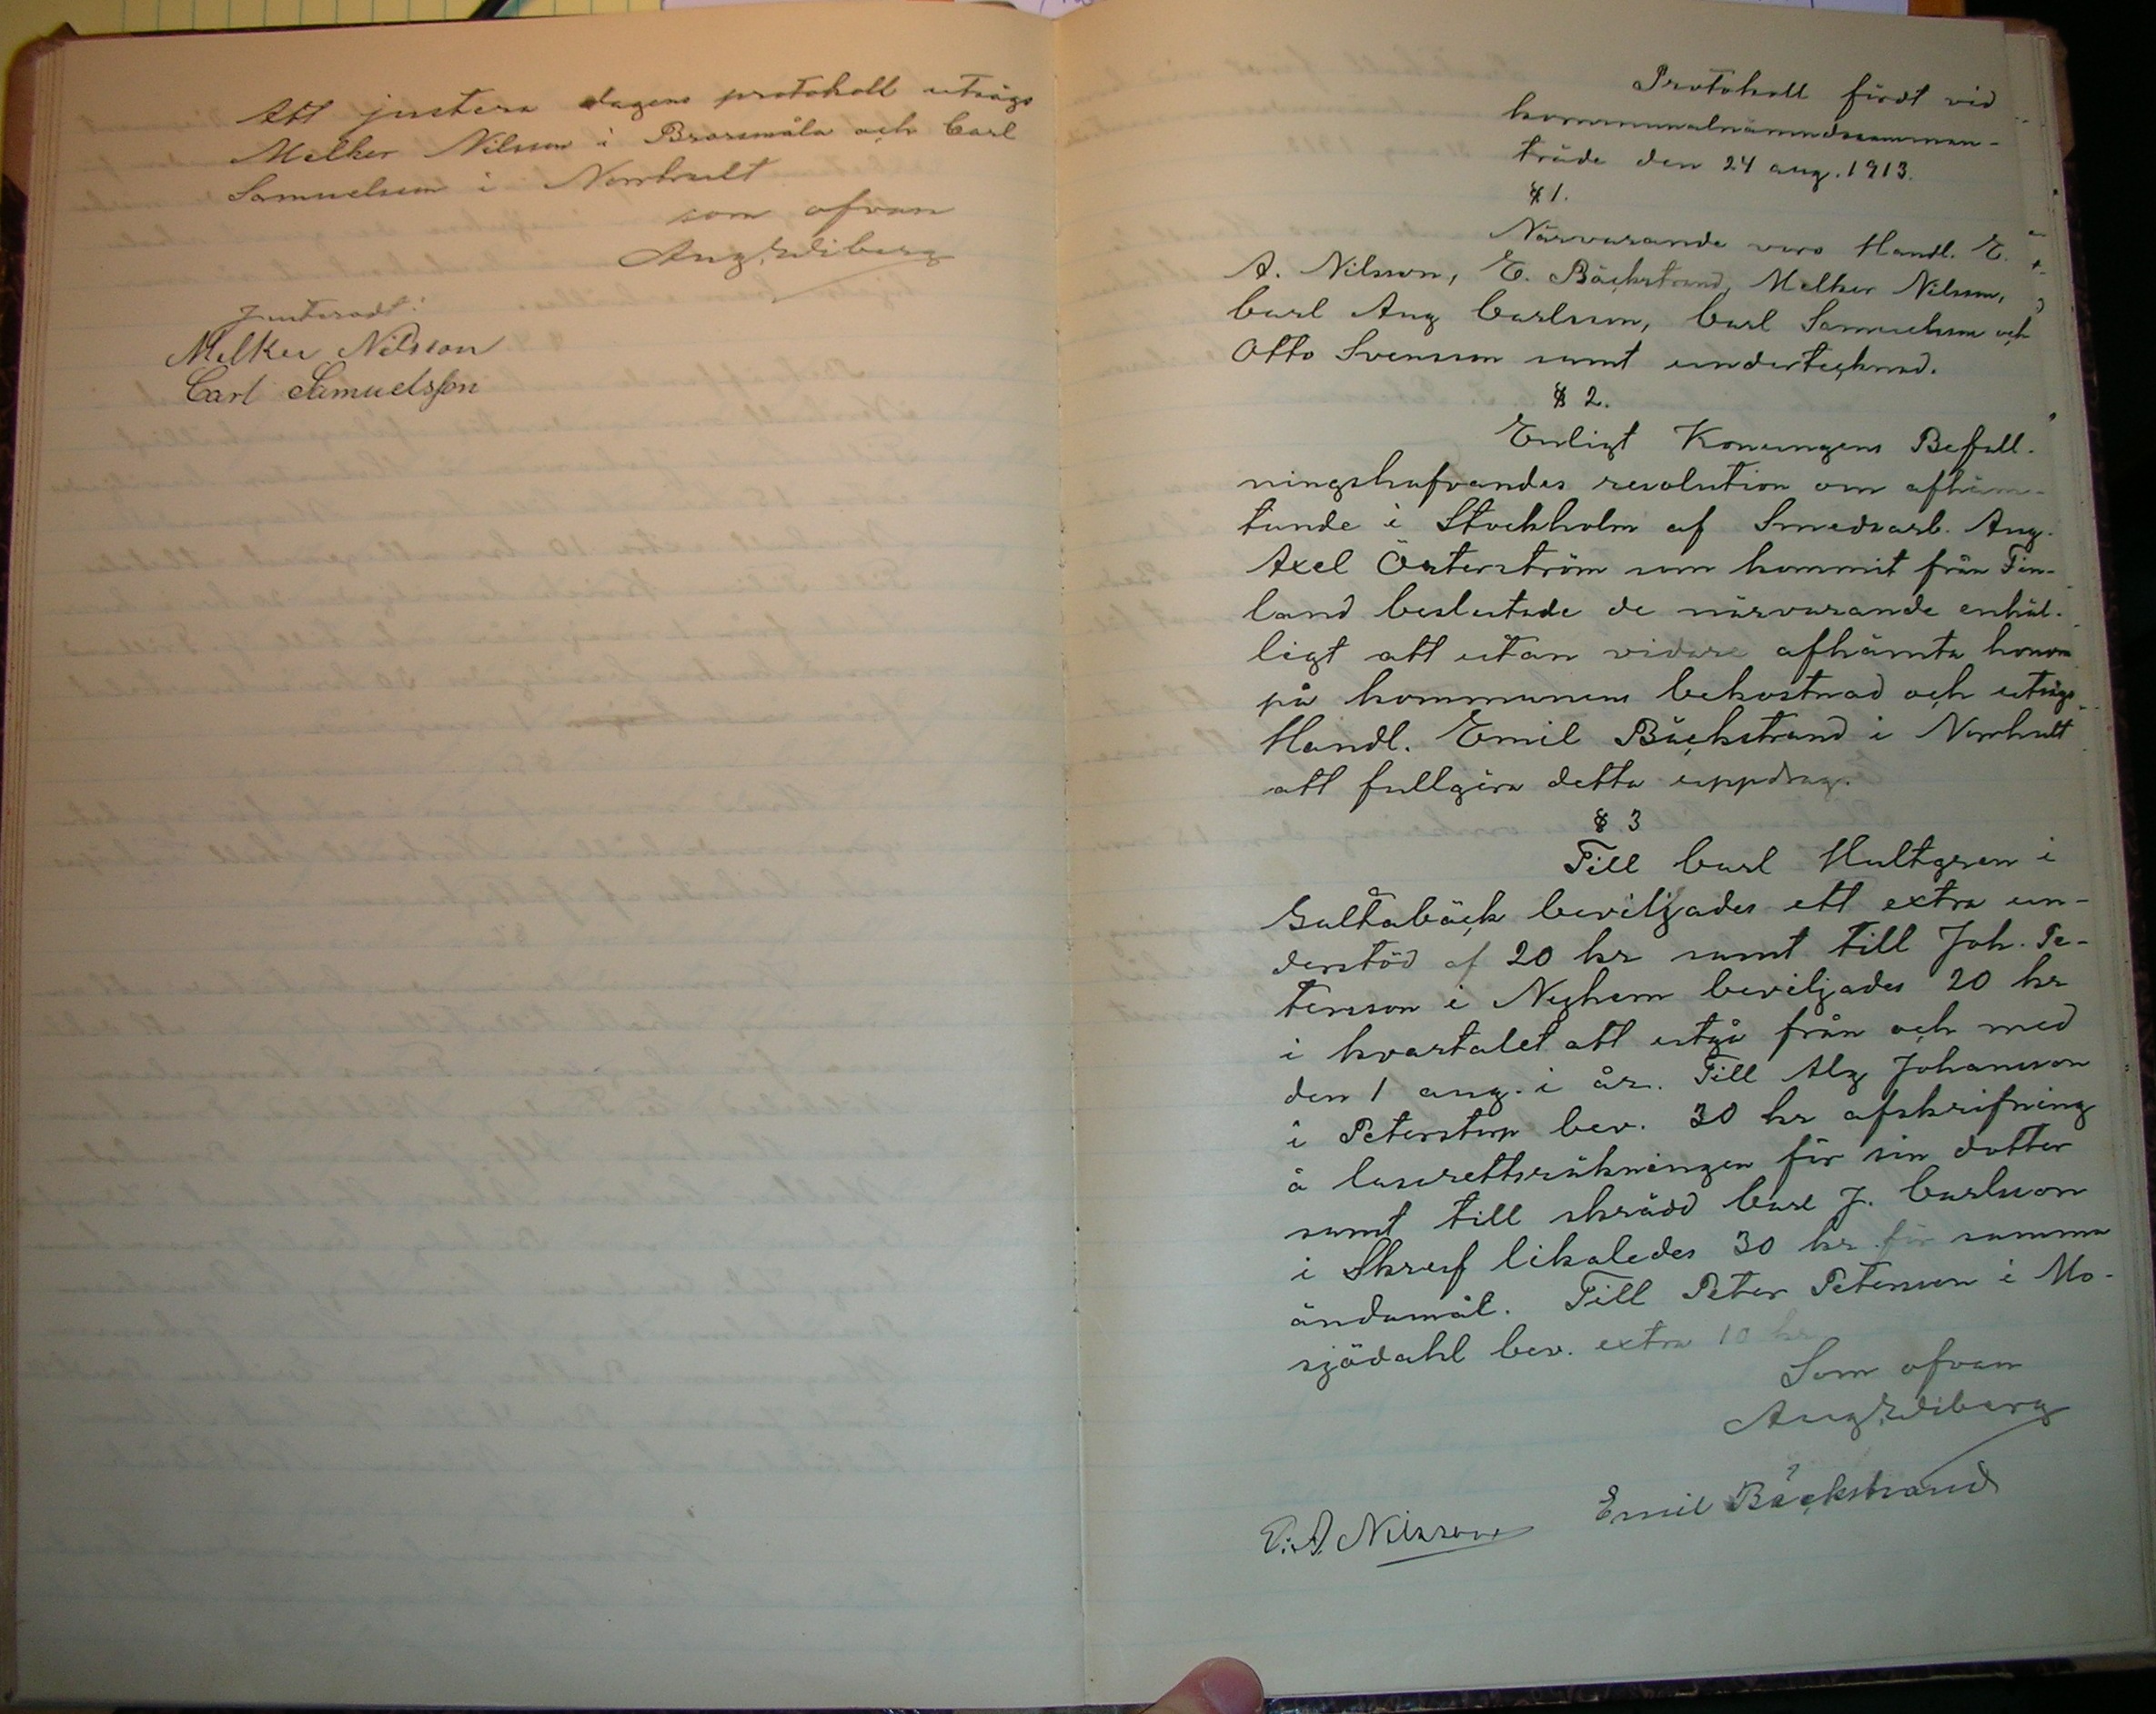 Att justera dagens protokoll utsågs
Melker Nilsson i Brorsmåla och Carl
Samuelsson i Norrhult
som ofvan
Aug. Wiberg
Justeradt:
Melker Nilsson
Carl Samuelsson
Protokoll fördt vid
kommunalnämndssamman-
träde den 24 aug. 1913.
§ 1.
Närvarande voro Handl. E.
A. Nilsson, E. Bäckstrand, Melker Nilsson,
Carl Aug Carlsson, Carl Samuelsson och
Otto Svensson samt undertecknad.
§ 2.
Enligt Konungens Befall-
ningshafvandes resolution om afhäm-
tande i Stockholm af Smedsarb. Aug.
Axel Österström som kommit från Fin-
land beslutade de närvarande enhäl-
ligt att utan vidare afhämta honom
på kommunens bekostnad och utsågs
Handl. Emil Bäckstrand i Norrhult
att fullgöra detta uppdrag.
§ 3
Till Carl Hultgren i
beviljades ett extra un-
derstöd af 20 kr samt till Joh. Pe-
tersson i beviljades 20 kr
i kvartalet att utgå från och med
den 1 aug. i år. Till Alg Johansson
i Peterstorp bev. 30 kr afskrifning
å lasarettsräkningen för sin dotter
samt till skrädd Carl J. Carlsson
i Skruf likaledes 30 kr för samma
ändamål. Till Peter Petersson i Mo-
sjödahl bev. extra 10 kr
Som ofvan
Aug. Wiberg
E. A. Nilsson Emil Bäckstrand